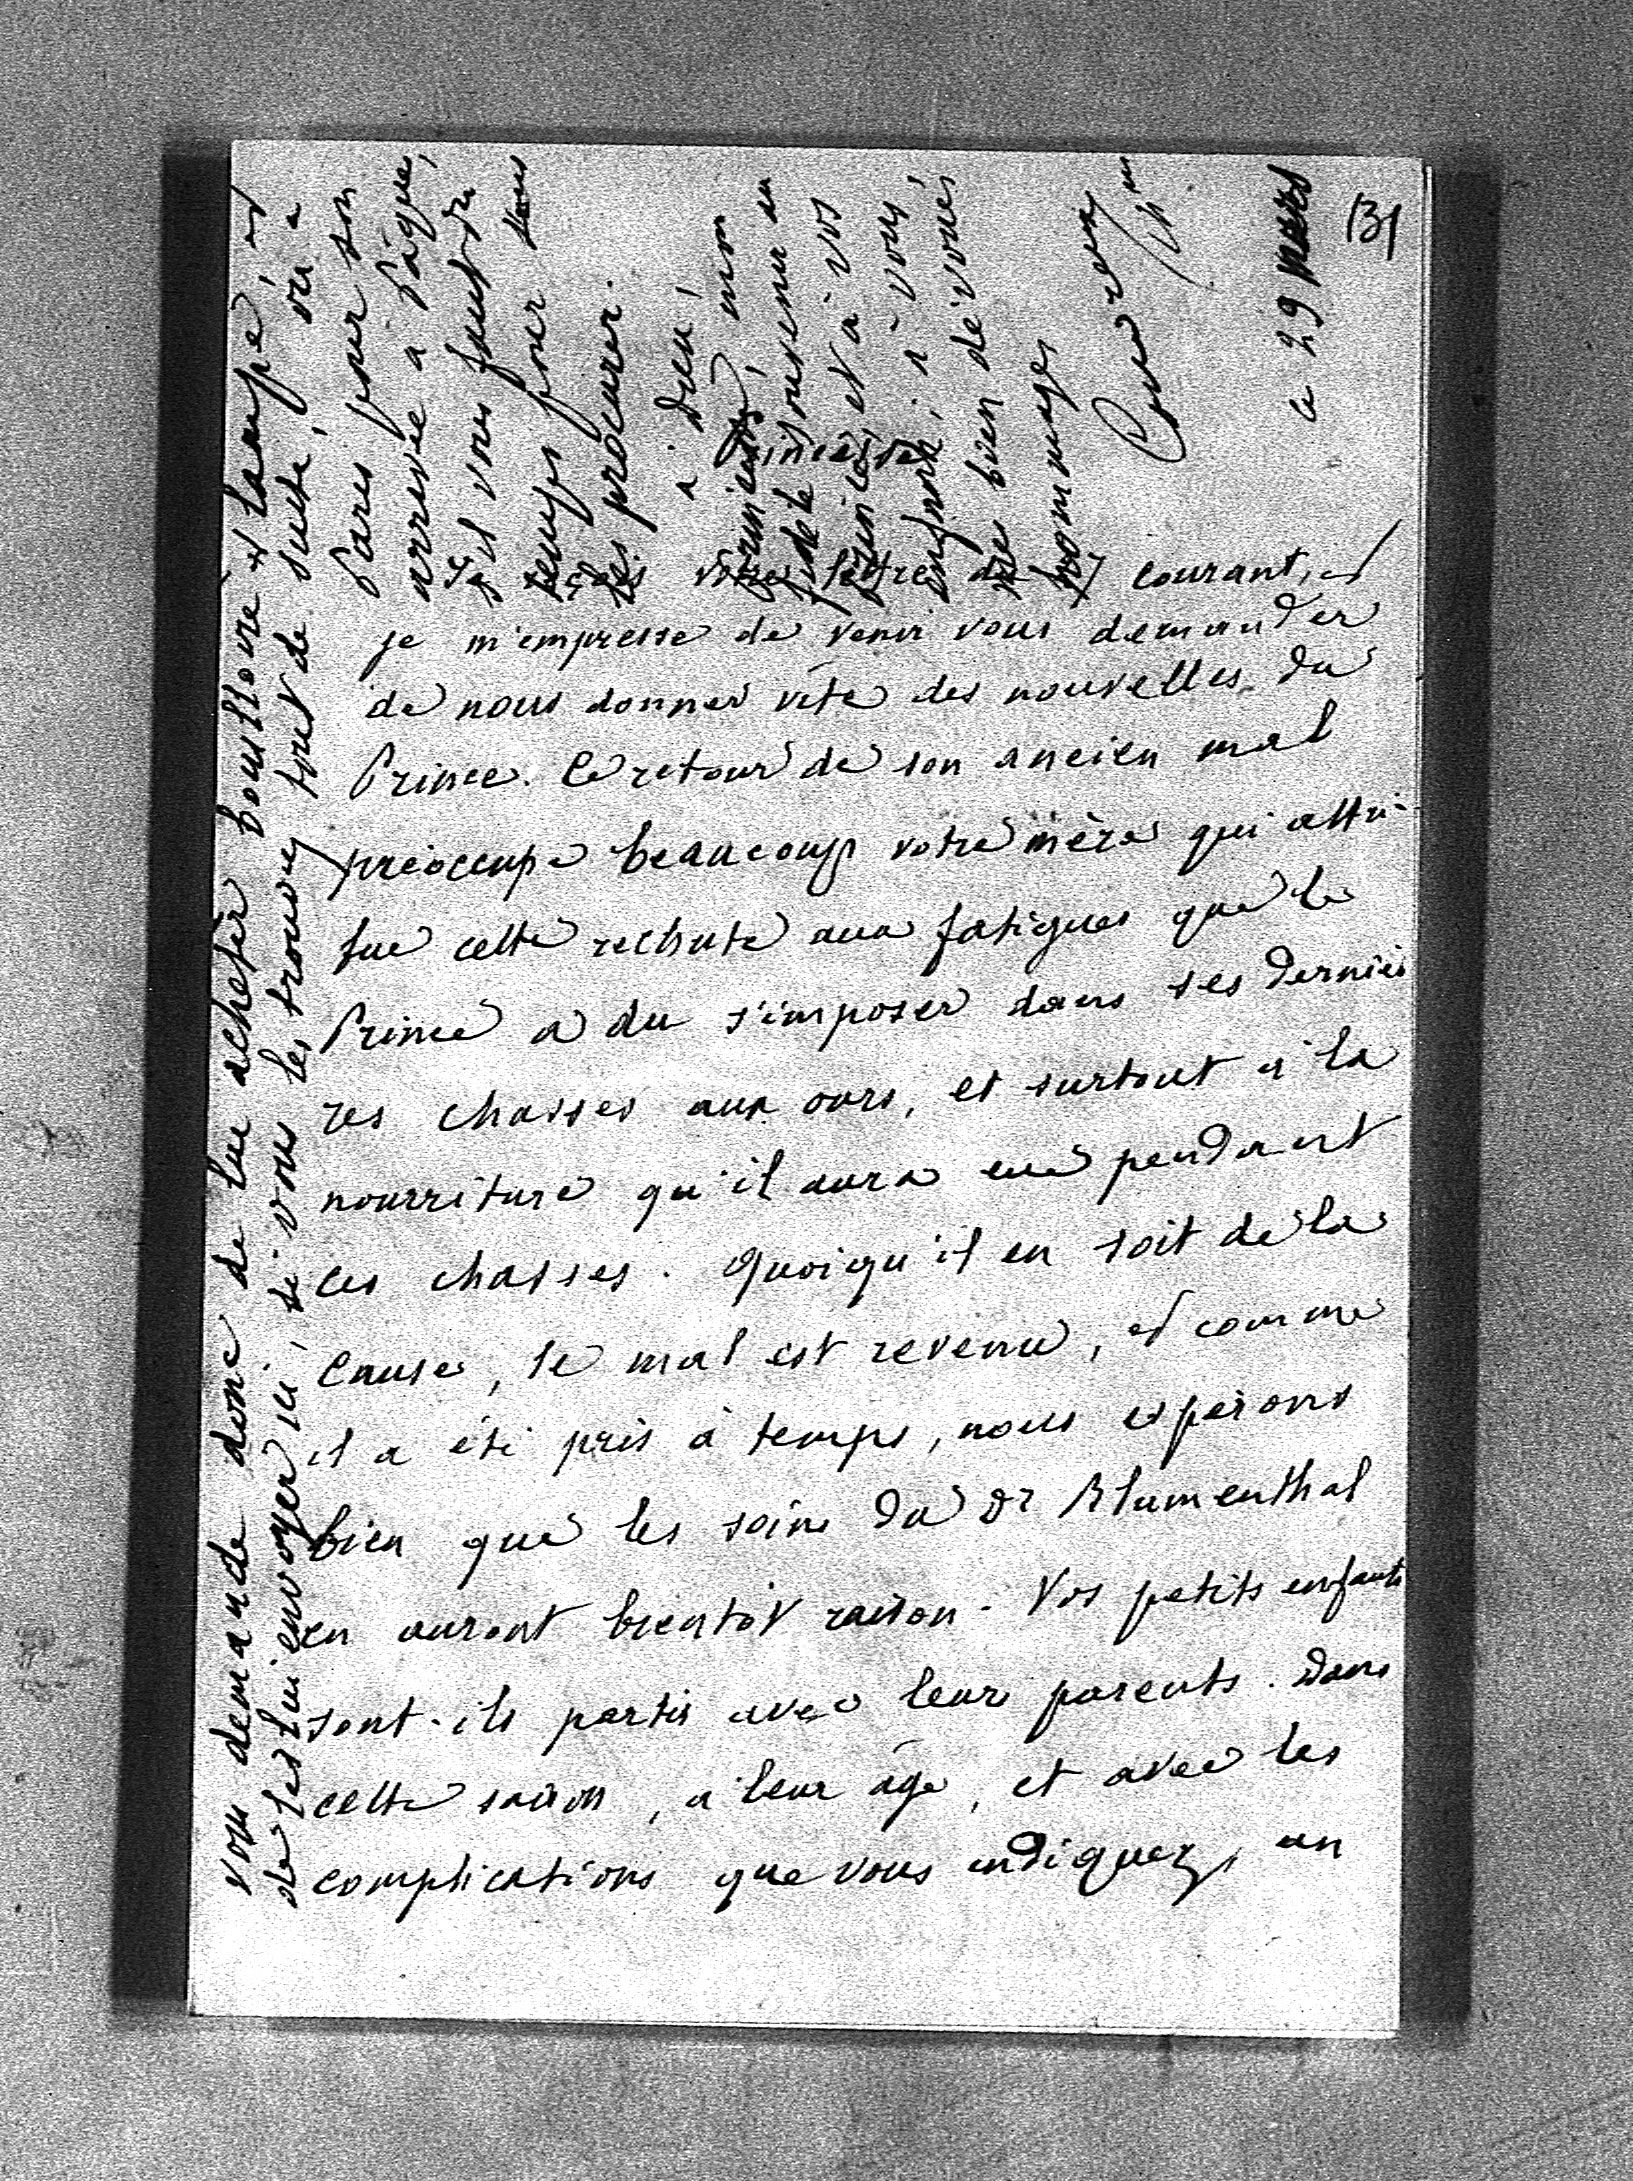 131
ce 29 mars
Princesse
reçois votre lettre du 17 courant, et
je m'empresse de venir vous demander
de nous donner vite des nouvelles du
Prince. Le retour de son ancien mal
préoccupe beaucoup votre mère qui attri-
bue cette rechute aux fatigues que le
Prince a du s'imposer dans ses derniè
res chasses aux ours, et surtout à la
nourriture qu'il aura eue pendant
ces chasses. Quoiqu'il en soit de la
cause, le mal est revenu, et comme
il a été pris à temps, nous espérons
bien que les soins du Dr Blumenthal
en auront bientôt raison. Vos petits enfants
sont-ils partis avec leurs parents. Dans
cette saison, à leur âge, et avec les
complications que vous indiquez, un
vous demande donc de lui acheter bouilloire et lampe, et
de les lui envoyer ici, si vous les trouvez tout de suite, ou à
Paris pour son
arrivée à Pâque,
s'il vous faut du
temps pour vous
les procurer.
à Dieu,
mon
fidèle souvenir au
Prince, et à vos
enfants, à vous
mes bien dévoués
hommages